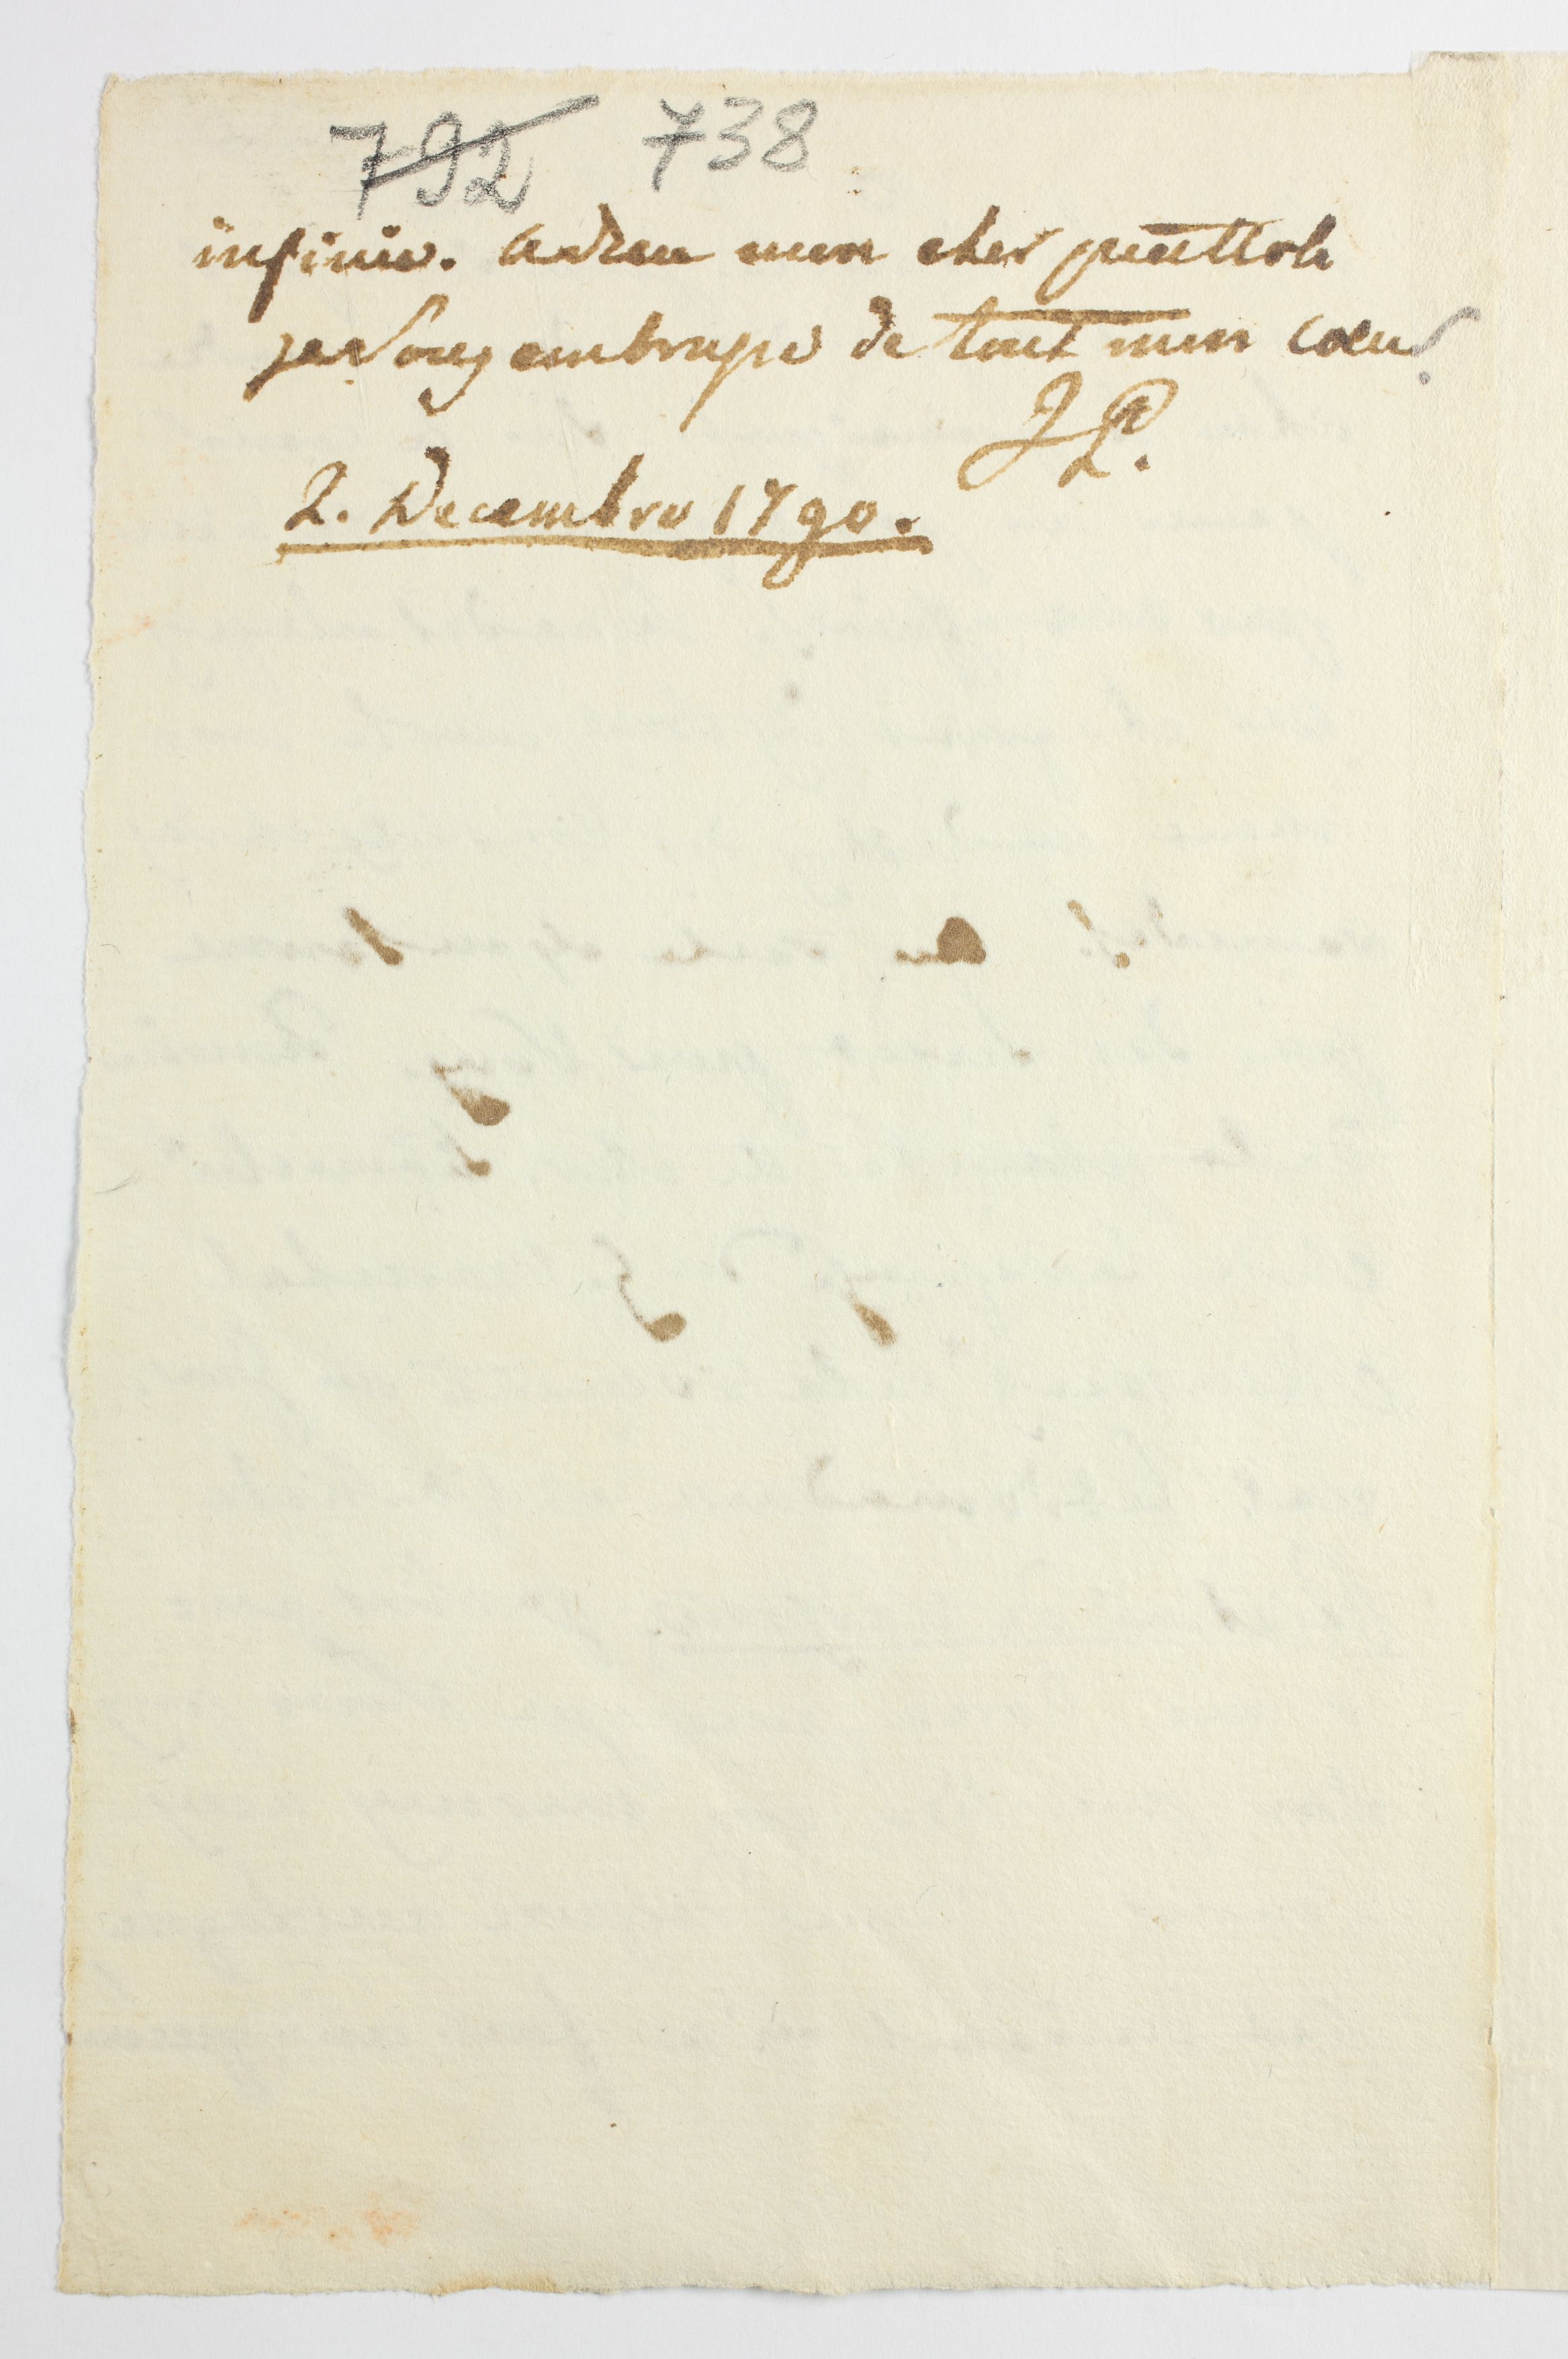 792 738
infinie. adieu mon cher piattoli
je vous embrasse de tout mon cœur.
JP.
2. Decembre 1790.